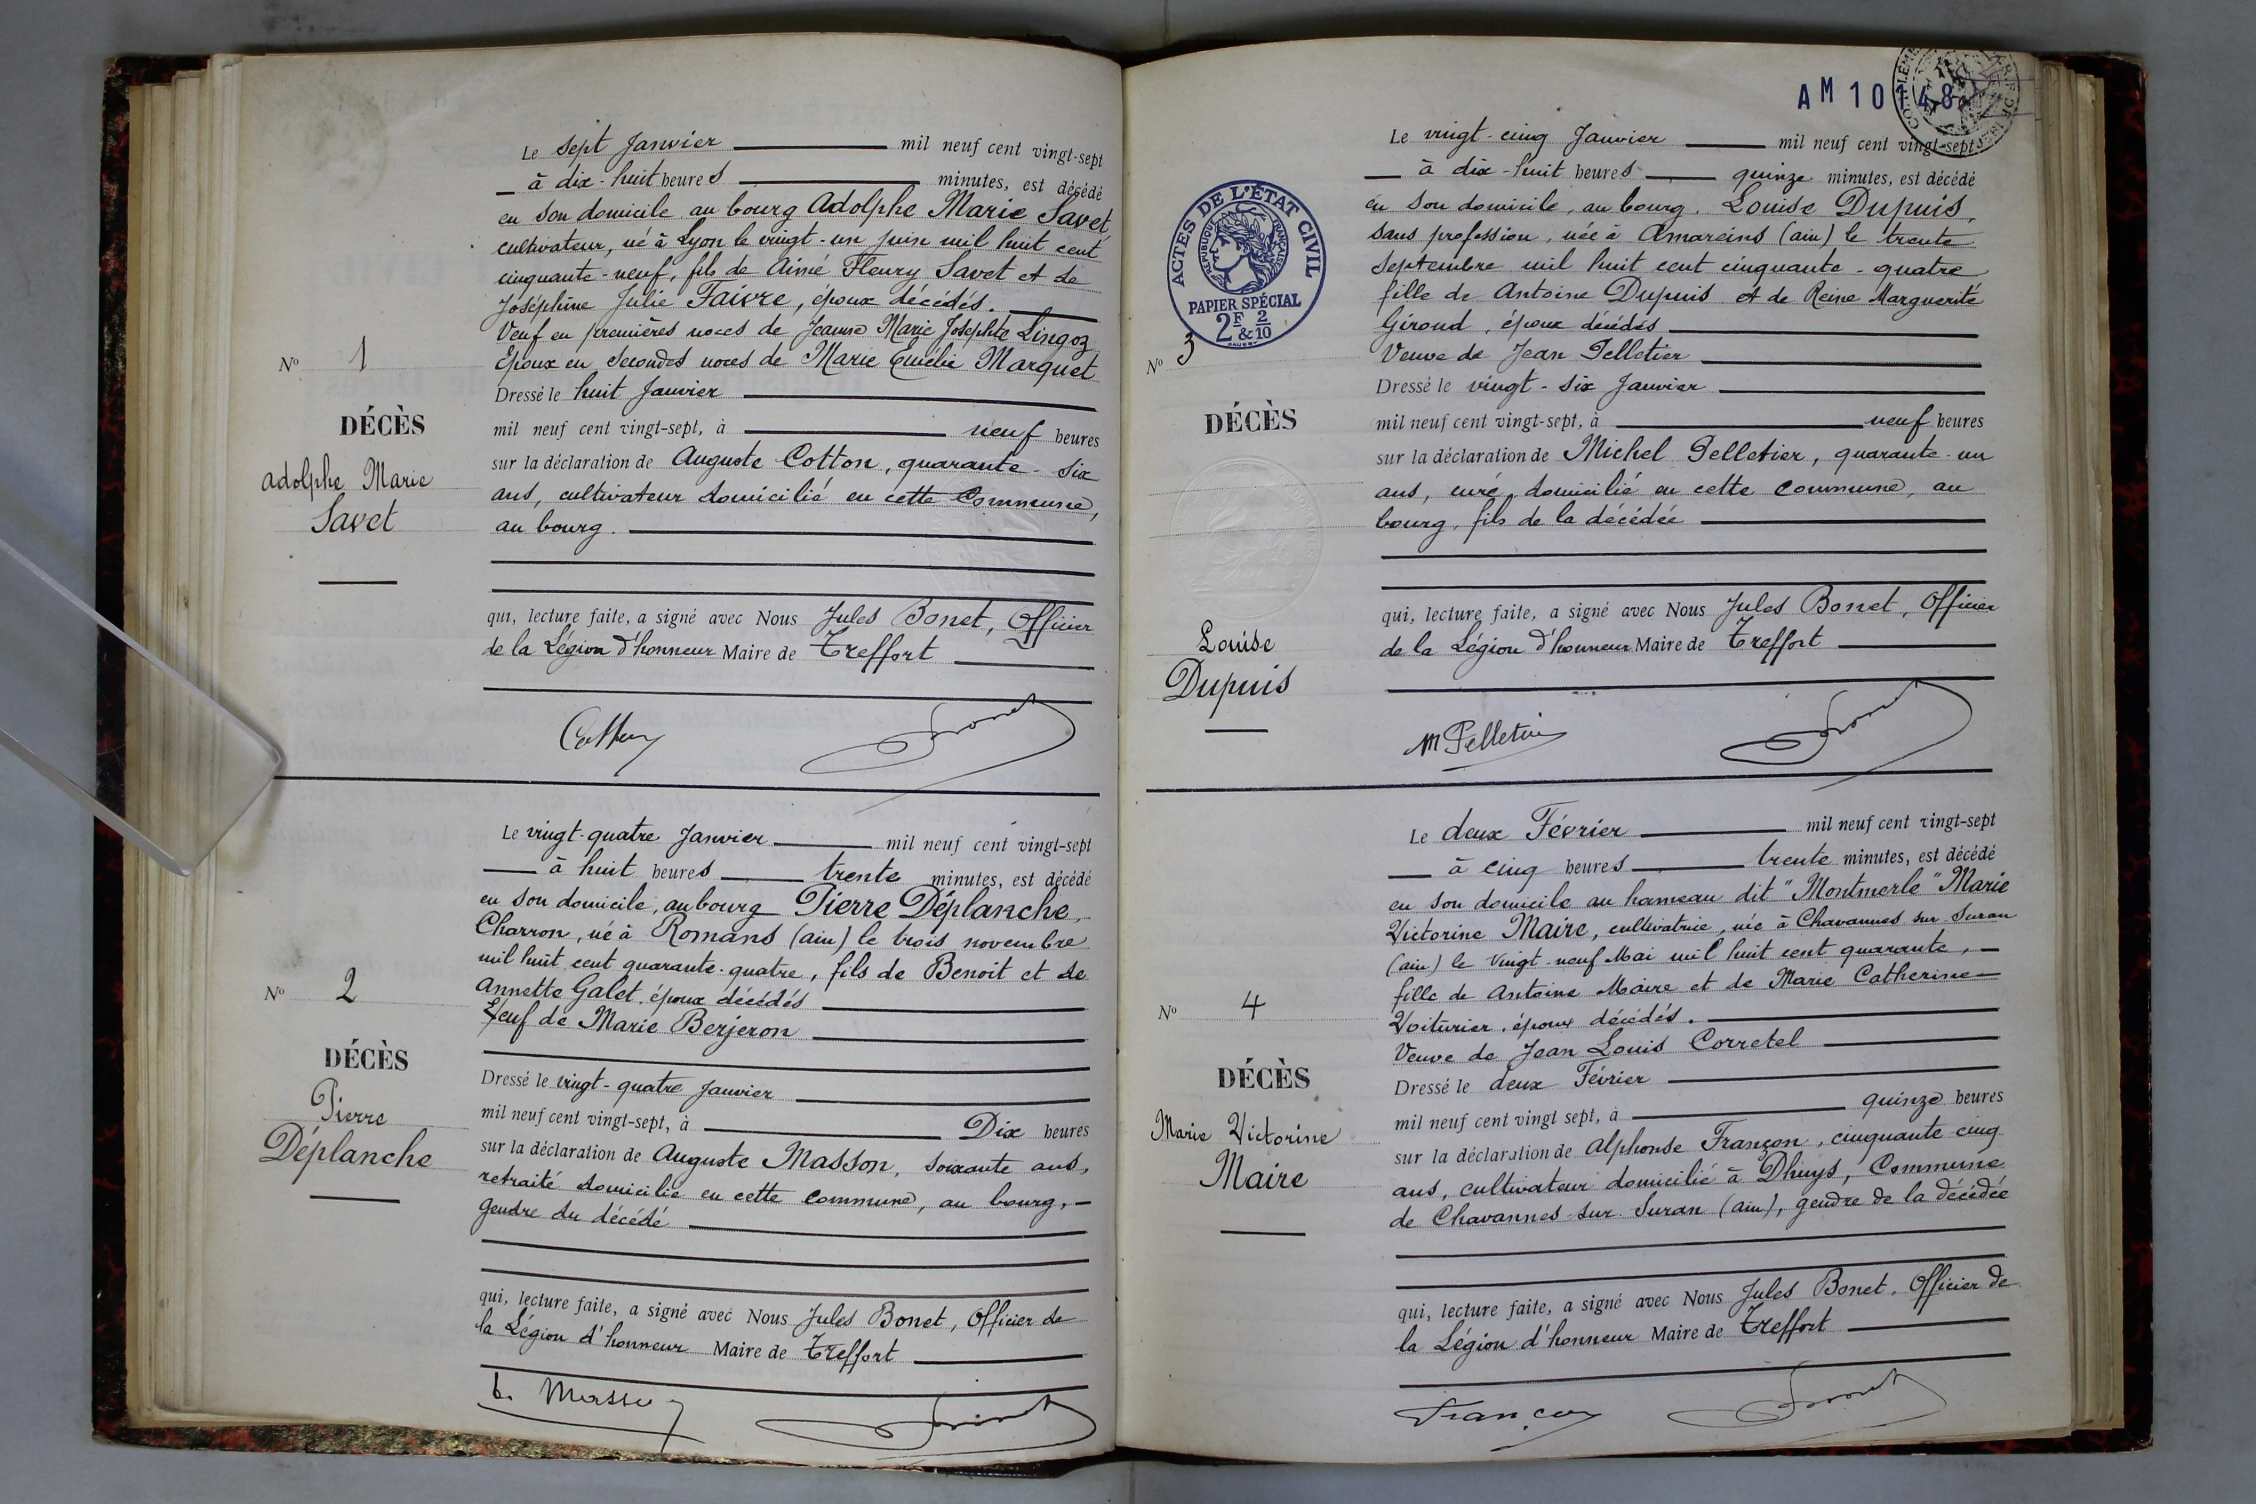 Le sept Janvier mil neuf cent vingt-sept
à dix-huit heures minutes, est décédé
en son domicile au bourg Adolphe Marie Savet,
cultivateur, né à Lyon le vingt-un juin mil huit cent
cinquante-neuf, fils de Aimé Fleury Savet et de
Joséphine Julie Faivre, époux décédés.
Veuf en premières noces de Jeanne Marie Josephte Lingoz
Epoux en secondes noces de Marie Emélie Marquet
No 1
Dressé le huit Janvier
DÉCÈS
mil neuf cent vingt-sept, à neuf heures
sur la déclaration de Auguste Cotton, quarante-six
Adolphe Marie
ans, cultivateur domicilié en cette Commune,
Savet
au bourg.
qui, lecture faite, a signé avec Nous Jules Bonet, Officier
de la Légion d'honneur Maire de Treffort
Le vingt-quatre Janvier mil neuf cent vingt-sept
à huit heures trente minutes, est décédé
en son domicile, au bourg Pierre Déplanche,
Charron, né à Romans (ain) le trois novembre
mil huit cent quarante-quatre, fils de Benoit et de
No 2
Annette Galet, époux décédés
Veuf de Marie Berjeron
DÉCÈS
Dressé le vingt-quatre Janvier
Pierre
mil neuf cent vingt-sept, à Dix heures
Déplanche
sur la déclaration de Auguste Masson, soixante ans,
retraité domicilié en cette commune, au bourg,
gendre du décédé
qui, lecture faite, a signé avec Nous Jules Bonet, Officier de
la Légion d'honneur Maire de Treffort
AM 10148
Le vingt-cinq Janvier mil neuf cent vingt-sept
à dix-huit heures quinze minutes, est décédé
en son domicile, au bourg. Louise Dupuis,
sans profession, née à Amareins (ain) le trente
septembre mil huit cent cinquante-quatre
fille de Antoine Dupuis et de Reine Marguerite
Giroud, époux décédés
Veuve de Jean Pelletier
ACTES DE L'ÉTAT CIVIL
RÉPUBLIQUE FRANÇAISE
PAPIER SPÉCIAL
2F & 2/10
No 3
Dressé le vingt-six Janvier
DÉCÈS
mil neuf cent vingt-sept, à neuf heures
sur la déclaration de Michel Pelletier, quarante-un
ans, curé, domicilié en cette commune, au
bourg, fils de la décédée
qui, lecture faite, a signé avec Nous Jules Bonet, Officier
Louise
de la Légion d'honneur Maire de Treffort
Dupuis
M Pelletier
Le deux Février mil neuf cent vingt-sept
à cinq heures trente minutes, est décédé
en son domicile au hameau dit "Montmerle" Marie
Victorine Maire, cultivatrice, née à Chavannes sur Suran
(ain) le vingt-neuf Mai mil huit cent quarante,
fille de Antoine Maire et de Marie Catherine
No 4
Voiturier, époux décédés.
Veuve de Jean Louis Corretel
DÉCÈS
Dressé le deux Février
Marie Victorine
mil neuf cent vingt sept, à quinze heures
Maire
sur la déclaration de Alphonse Françon, cinquante cinq
ans, cultivateur domicilié à Dhuys, Commune
de Chavannes sur Suran (ain), gendre de la décédée
qui, lecture faite, a signé avec Nous Jules Bonet, Officier de
la Légion d'honneur Maire de Treffort
Françon